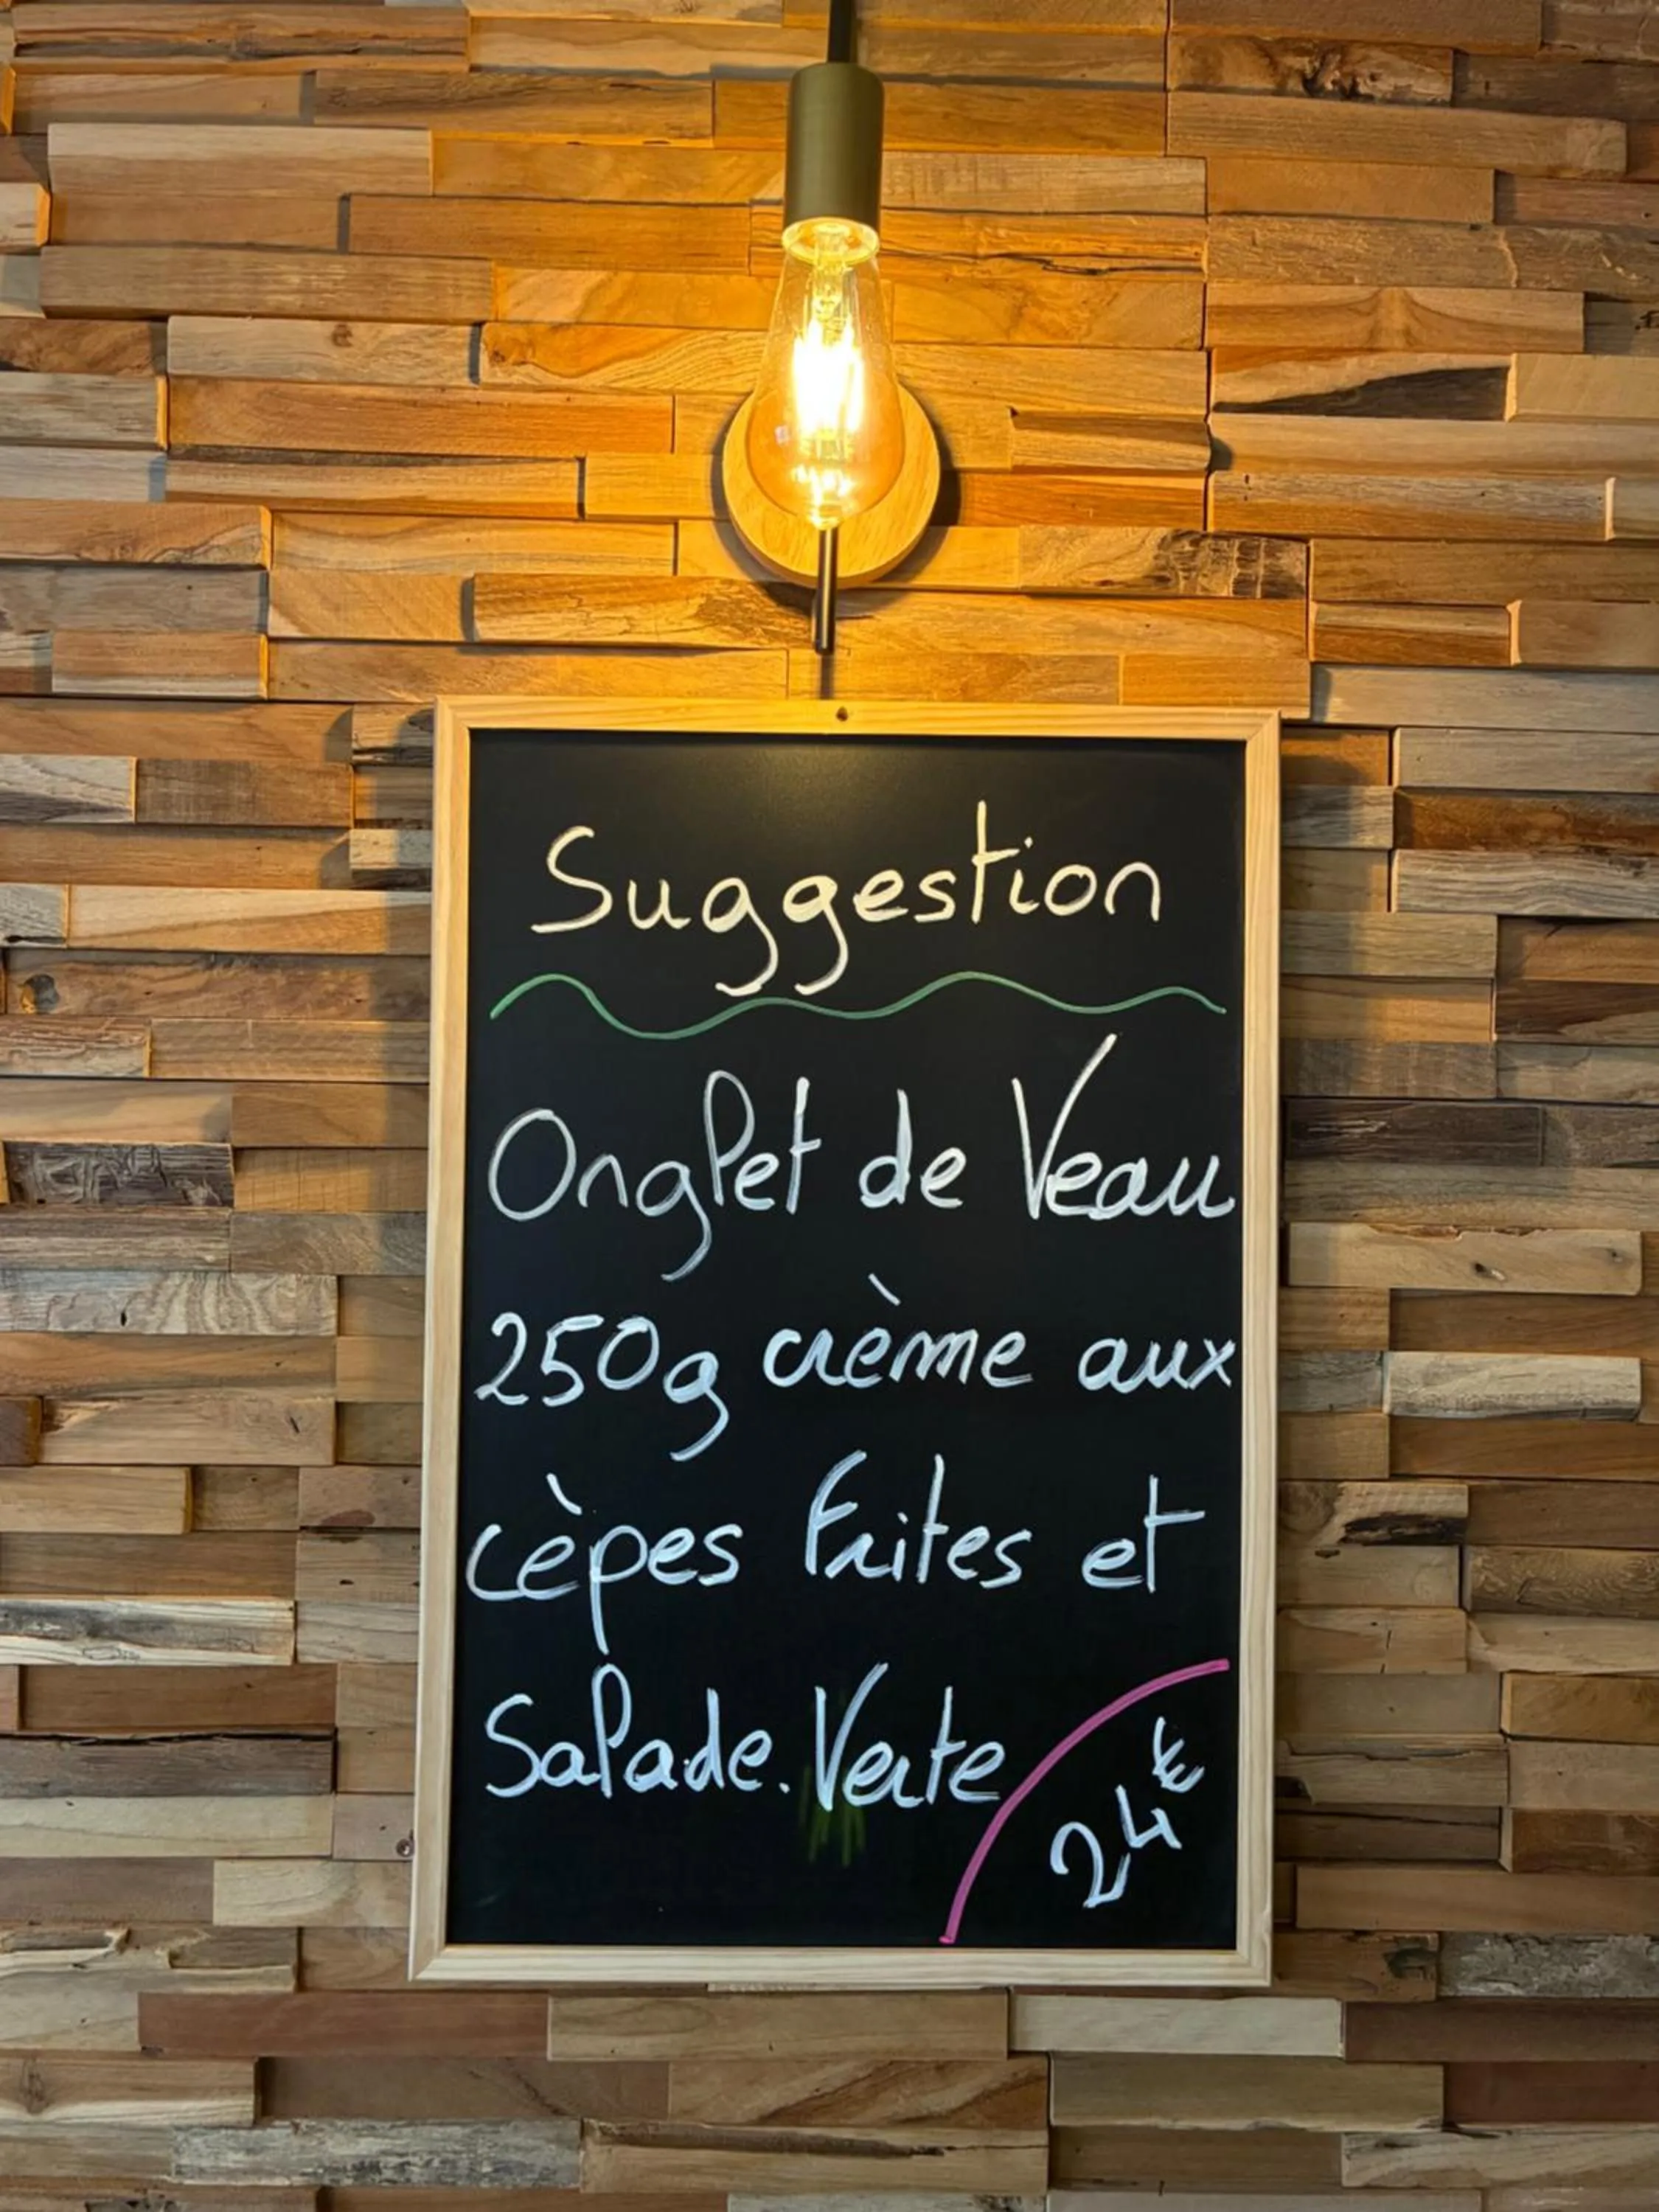 Suggestion
Onglet de Veau
250g crème aux
cèpes Frites et
Salade. Verte
24€